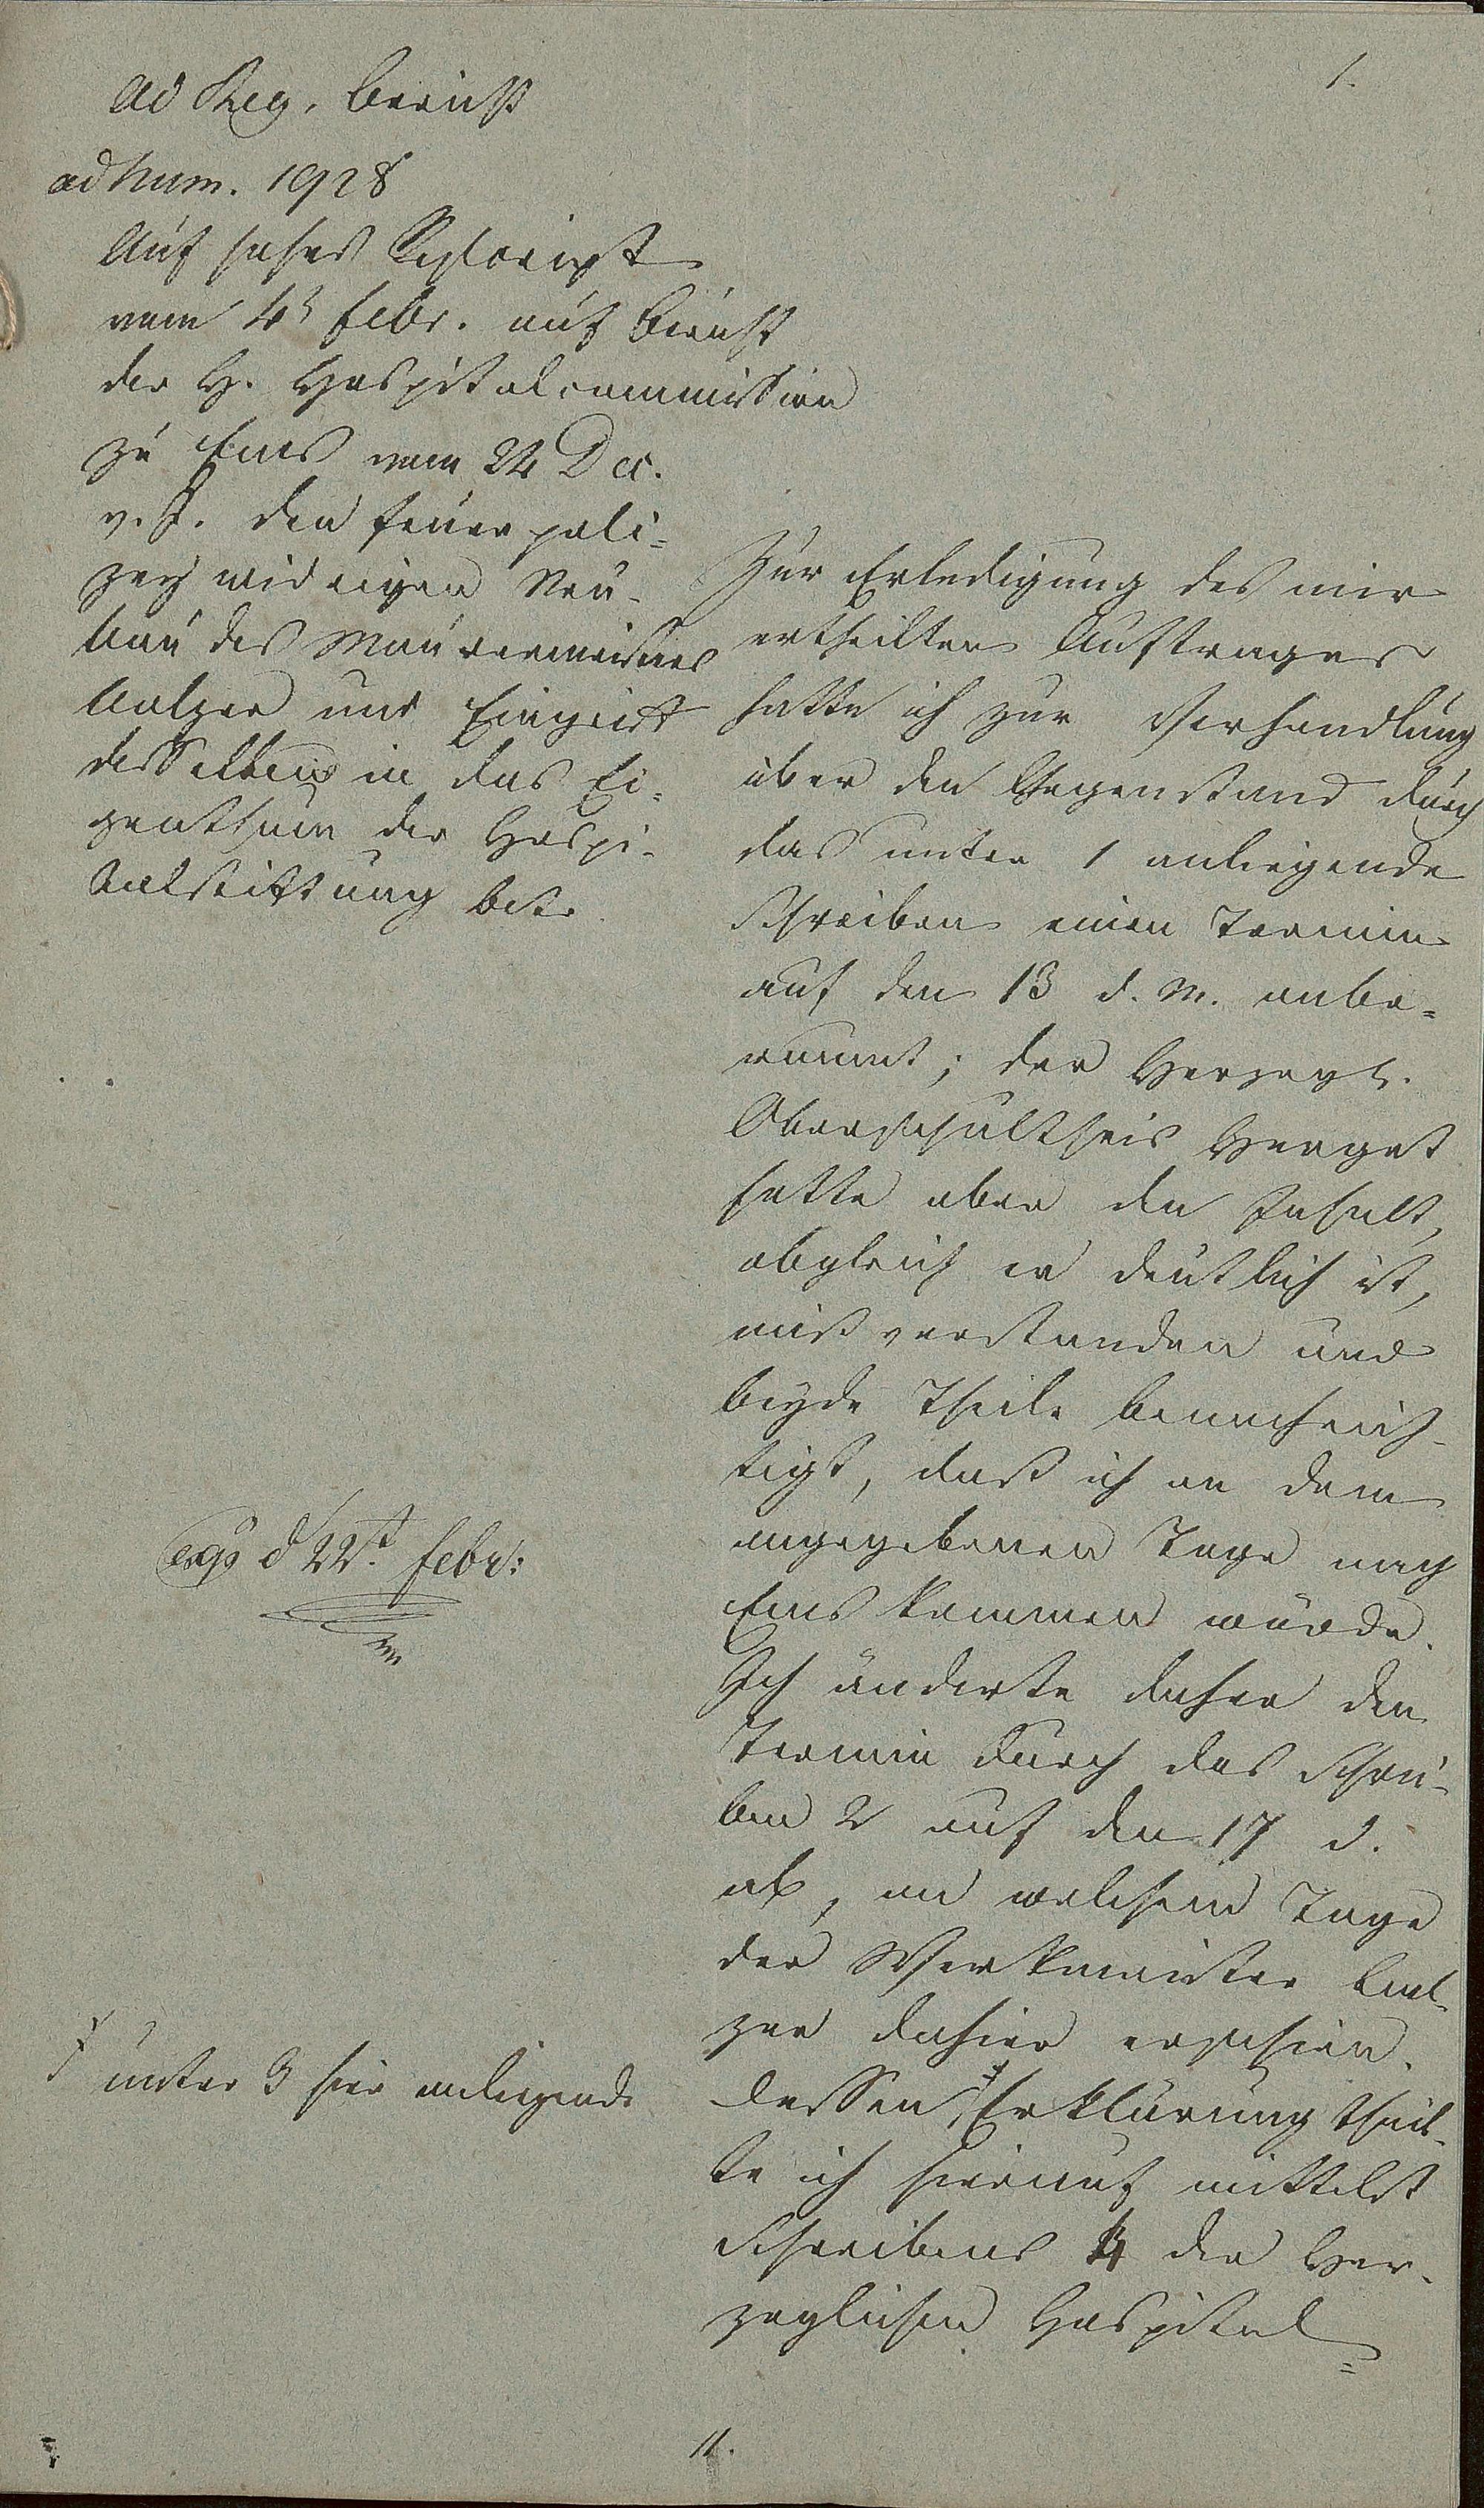 1.
ad Reg. Bericht
ad Num. 1928
Auf hohes Rescript
vom 4t Febr. auf Bericht
der H. Hospitalcommission
zu Ems vom 24 Dec.
v. J. den feuerpoli=
zeywidrigen Neu-
bau des Maurermeisters
Balzer und Eingriff
desselben in das Ei-
genthum der Hospi-
talstiftung betr.
Zur Erledigung des mir
ertheilten Auftrages
hatte ich zur Verhandlung
über den Gegenstand durch
das unter 1 anliegende
Schreiben einen Termin
auf den 13 d. M. anbe=
raumt; der Herzogl.
Oberschultheis Herget
hatte aber den Inhalt,
obgleich er deutlich ist,
mißverstanden und
beyde Theile benachrich-
tigt, daß ich an dem
angegebenen Tage nach
Ems kommen würde.
Ich änderte daher den
Termin durch das Schrei-
ben 2 auf den 17 d.
ab, an welchem Tage
der Werkmeister Bal-
zer dahier erschien.
Dessen Erklärung theil-
te ich hierauf mittelst
Schreibens 4 der Her-
zoglichen Hospital=
exp d 22st Febr:
unter 3 hier anliegende
11.